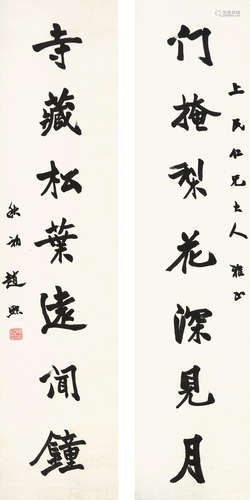 上民仁兄大人 雅正
门掩梨花深見月
寺藏松葉遠聞鐘
秋初趙熙